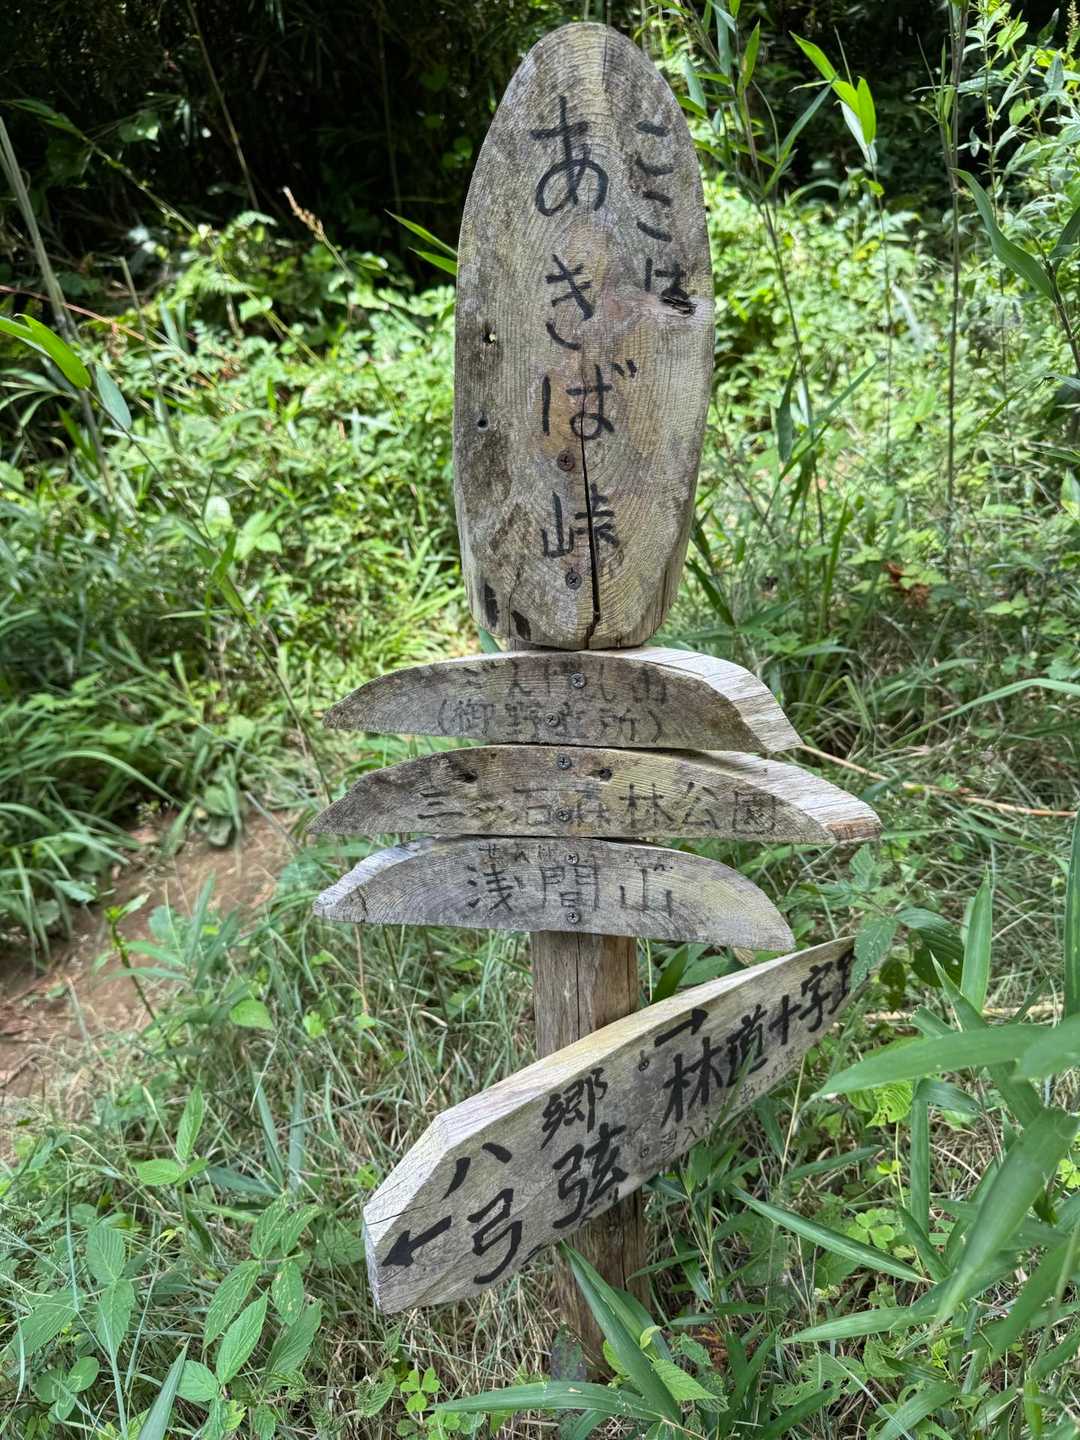 ここは
あきば峠
(御野立所)
三ッ石森林公園
せんげん
浅間山
→
林道十字路
八郷
←
弓弦